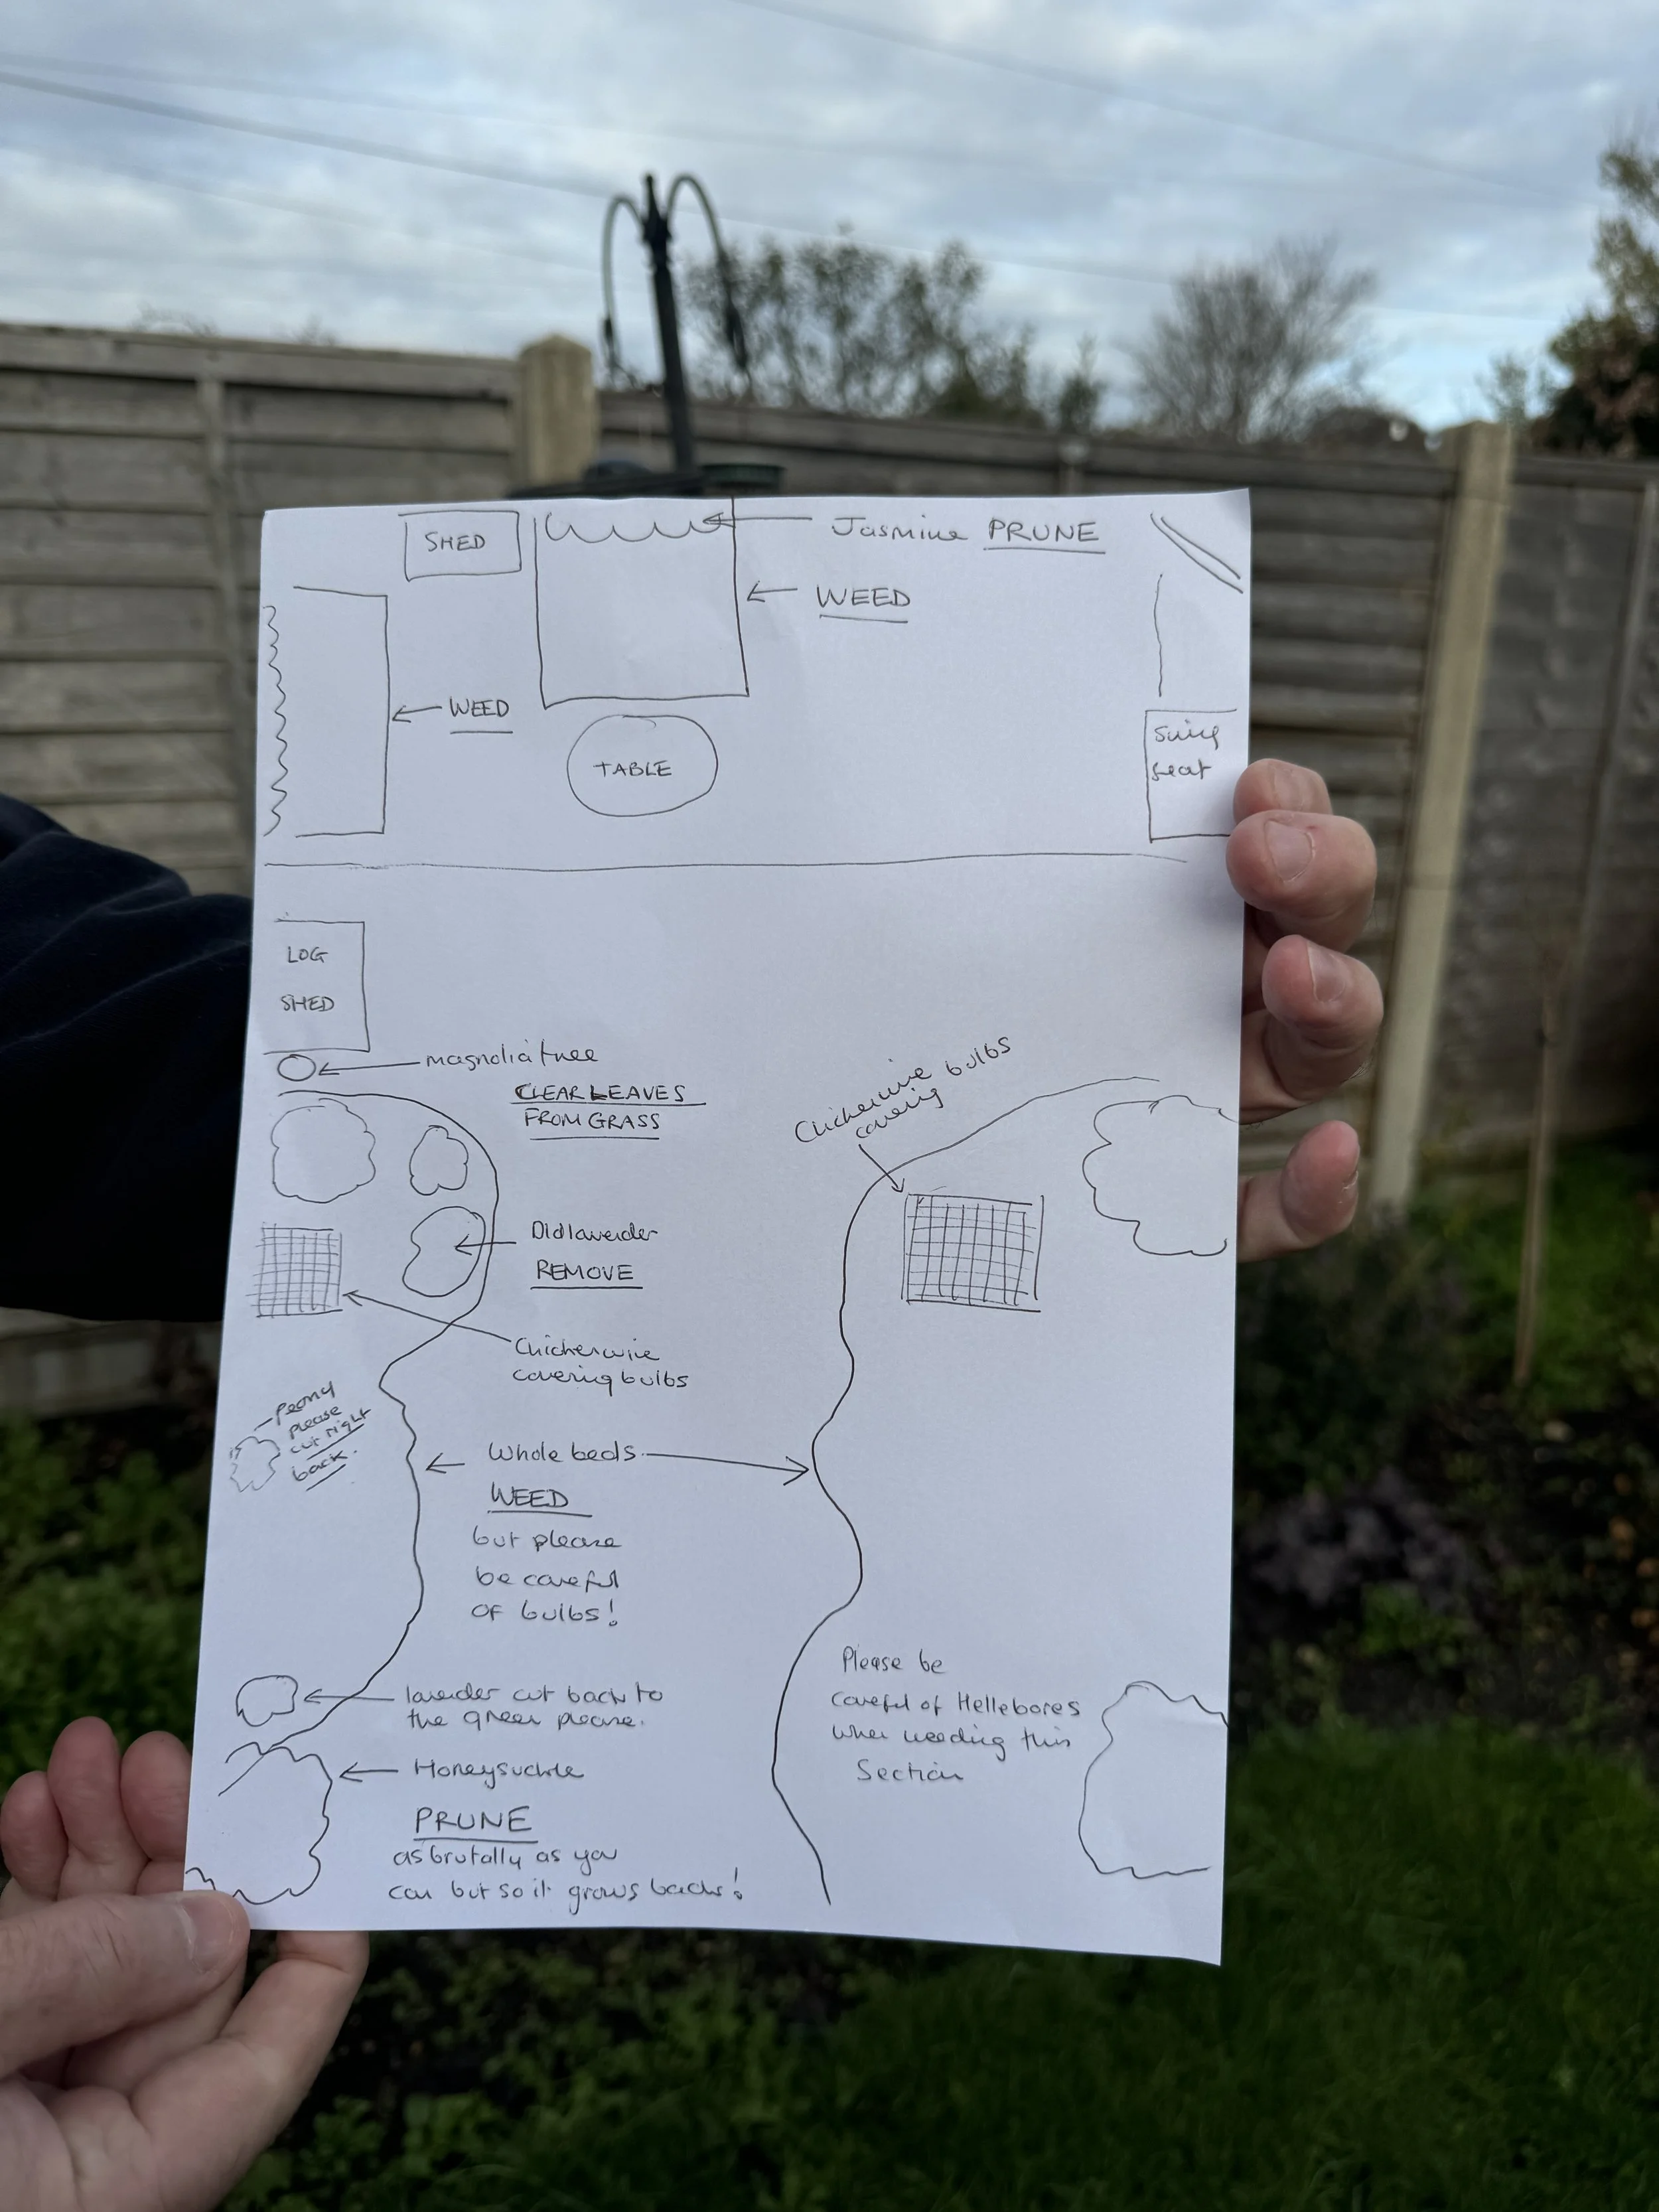 SHED
Jasmine PRUNE
WEED
WEED
TABLE
Swing
seat
LOG
SHED
magnolia tree
CLEAR LEAVES
FROM GRASS
Chickenwire bulbs
covering
Old lavender
REMOVE
Chickenwire
covering bulbs
Peony
please
cut right
back.
Whole beds.
WEED
but please
be careful
OF bulbs!
lavender cut back to
the green please.
Please be
careful of Hellebores
when weeding this
Section
Honeysuckle
PRUNE
as brutally as you
can but so it grows back!